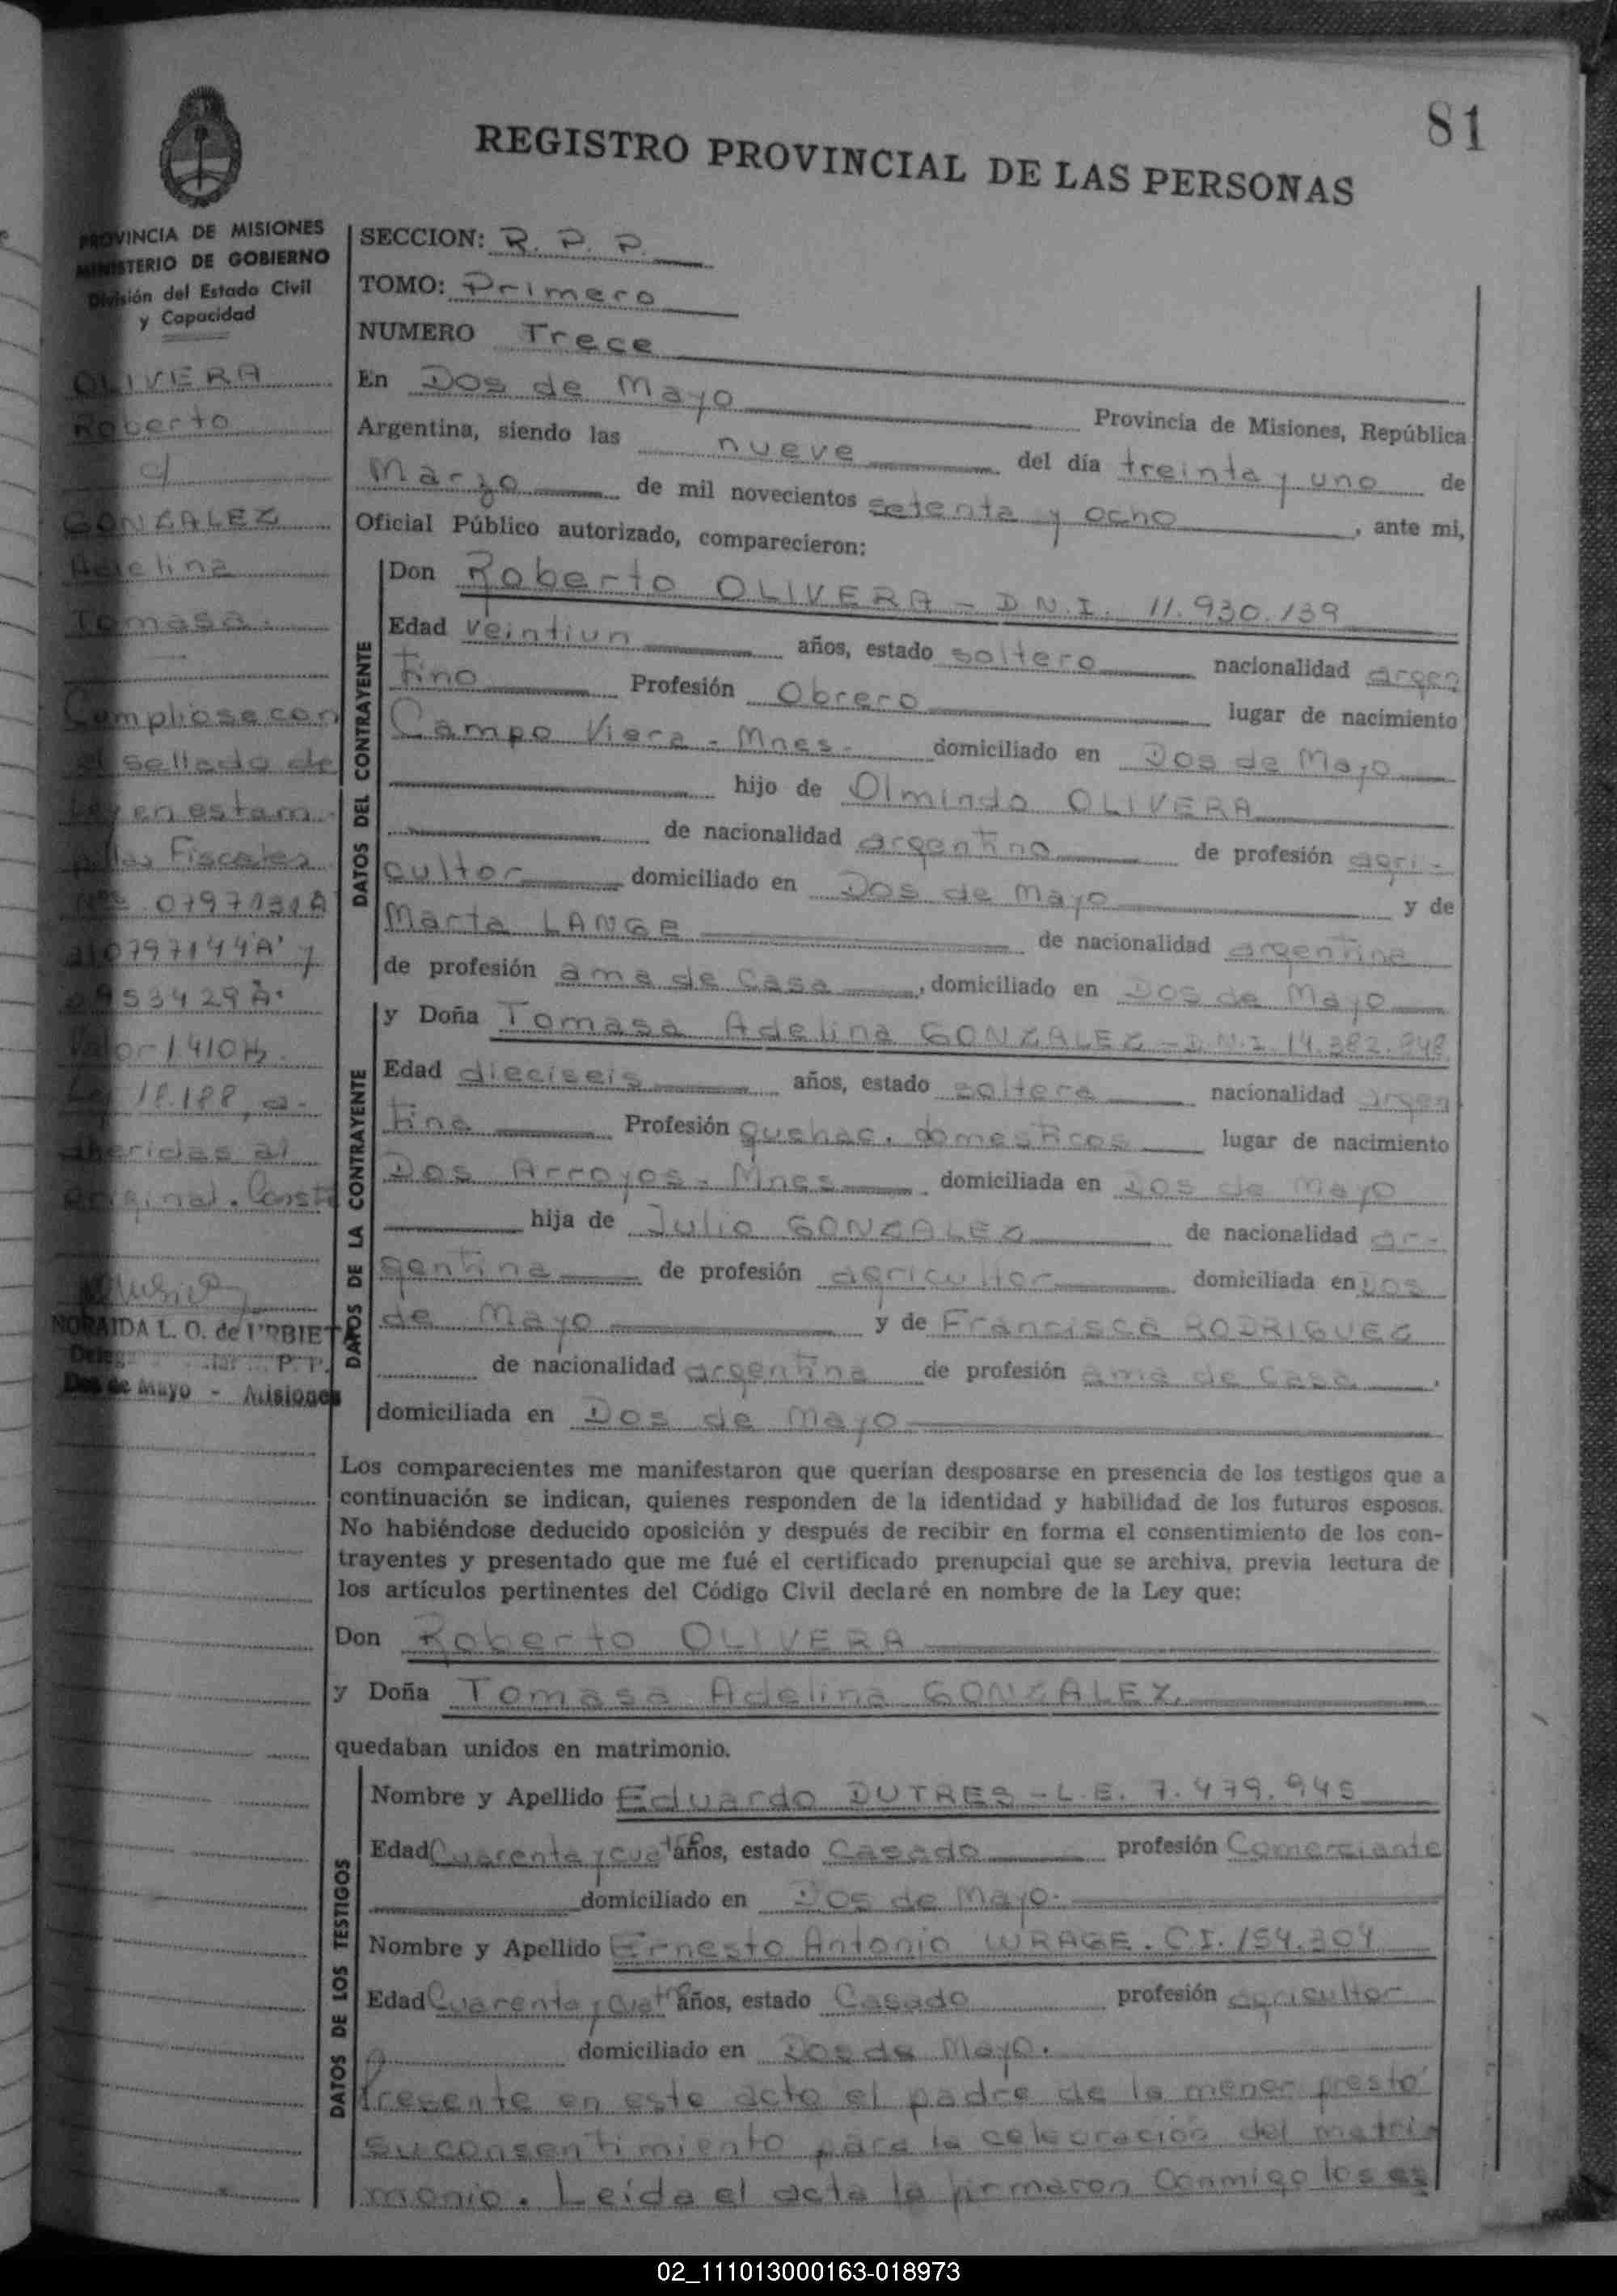 81
REGISTRO PROVINCIAL DE LAS PERSONAS
PROVINCIA DE MISIONES
MINISTERIO DE GOBIERNO
División del Estado Civil
y Capacidad
OLIVERA
Roberto
c/
GONZALEZ
Adelina
Tomasa.
Cumpliose con
el sellado de
Ley en estam
pillas Fiscales
Nos 0797131A
al 0797144A' y
0953429A'
Valor 1410
Ley 18.188, a-
dheridas al
original. Conste
NORAIDA L. O. de URBIETA
P. P.
Dos de Mayo - Misiones
SECCION: R. P. P.
TOMO: Primero
NUMERO Trece
En Dos de Mayo Provincia de Misiones, República
Argentina, siendo las nueve del día treinta y uno de
Marzo de mil novecientos setenta y ocho, ante mi,
Oficial Público autorizado, comparecieron:
DATOS DEL CONTRAYENTE
Don Roberto OLIVERA - D.N.I. 11.930.139
Edad veintiun años, estado soltero nacionalidad argen
tino Profesión Obrero lugar de nacimiento
Campo Viera - Mnes. domiciliado en Dos de Mayo
hijo de Olmindo OLIVERA
de nacionalidad argentino de profesión agri-
cultor domiciliado en Dos de Mayo y de
Marta LANGE de nacionalidad argentina
de profesión ama de Casa, domiciliado en Dos de Mayo
DATOS DE LA CONTRAYENTE
y Doña Tomasa Adelina GONZALEZ - D.N.I. 14.382.848
Edad dieciseis años, estado soltera nacionalidad argen
tina Profesión quehac. domesticos lugar de nacimiento
Dos Arroyos - Mnes domiciliada en Dos de Mayo
hija de Julio GONZALEZ de nacionalidad ar-
gentina de profesión agricultor domiciliada en Dos
de Mayo y de Francisca RODRIGUEZ
de nacionalidad argentina de profesión ama de Casa,
domiciliada en Dos de Mayo
Los comparecientes me manifestaron que querían desposarse en presencia de los testigos que a
continuación se indican, quienes responden de la identidad y habilidad de los futuros esposos.
No habiéndose deducido oposición y después de recibir en forma el consentimiento de los con-
trayentes y presentado que me fué el certificado prenupcial que se archiva, previa lectura de
los artículos pertinentes del Código Civil declaré en nombre de la Ley que:
Don Roberto OLIVERA
y Doña Tomasa Adelina GONZALEZ
quedaban unidos en matrimonio.
DATOS DE LOS TESTIGOS
Nombre y Apellido Eduardo DUTRES - L.E. 7.479.945
Edad Cuarenta y cuatro años, estado Casado profesión Comerciante
domiciliado en Dos de Mayo.
Nombre y Apellido Ernesto Antonio WRAGE. C.I. 154.304
Edad Cuarenta y cuatro años, estado Casado profesión agricultor
domiciliado en Dos de Mayo.
Presente en este acto el padre de la menor prestó
su consentimiento para la celebración del matri
monio. Leída el acta la firmaron conmigo los es
02_111013000163-018973